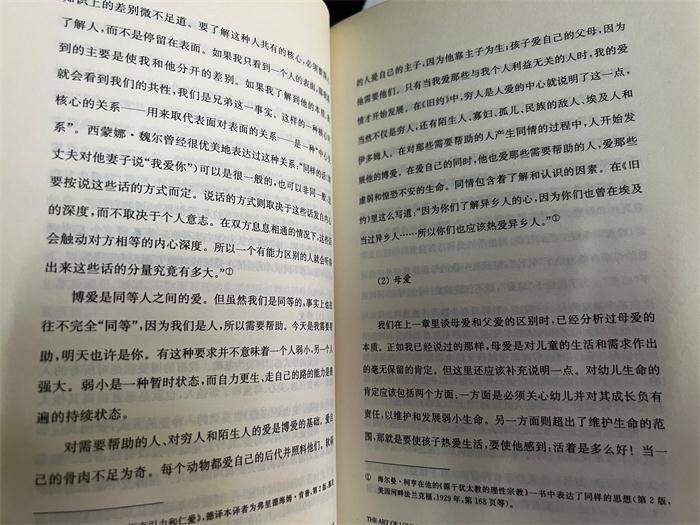 识上的差别微不足道。要了解这种人共有的核心,必须要深入
了解人,而不是停留在表面。如果我只看到一个人的表面,那我看
到的主要是使我和他分开的差别。如果我了解到他的本质,我
就会看到我们的共性,我们是兄弟这一事实。这样的一种核心和
核心的关系——用来取代表面对表面的关系——是一种“中心关
系”。西蒙娜·魏尔曾经很优美地表达过这种关系:“同样的话(如
丈夫对他妻子说“我爱你”)可以是很一般的,也可以非同一般,这
要按说这些话的方式而定。说话的方式则取决于这些话发自内心
的深度,而不取决于个人意志。在双方息息相通的情况下,这些话
会触动对方相等的内心深度。所以一个有能力区别的人就会听
出来这些话的分量究竟有多大。”①
博爱是同等人之间的爱。但虽然我们是同等的,事实上也往
往不完全“同等”,因为我们是人,所以需要帮助。今天是我需要帮
助,明天也许是你。有这种要求并不意味着一个人弱小,另一个人
强大。弱小是一种暂时状态,而自力更生、走自己的路的能力是普
遍的持续状态。
对需要帮助的人、对穷人和陌生人的爱是博爱的基础。爱自
己的骨肉不足为奇。每个动物都爱自己的后代并照料他们。软弱
引力和仁爱》,德译本译者为弗里德海姆·肯普,第2版,慕尼
的人爱自己的主子,因为他靠主子为生;孩子爱自己的父母,因为
他需要他们。只有当我爱那些与我个人利益无关的人时,我的爱
情才开始发展。在《旧约》中,穷人是人爱的中心就说明了这一点,
当然不仅是穷人,还有陌生人、寡妇、孤儿、民族的敌人、埃及人和
伊多姆人。在对那些需要帮助的人产生同情的过程中,人开始发
展他的博爱。在爱自己的同时,他也爱那些需要帮助的人,爱那些
虚弱和惶恐不安的生命。同情包含着了解和认识的因素。在《旧
约》里这么写道:“因为你们了解异乡人的心,因为你们也曾在埃及
当过异乡人……所以你们也应该热爱异乡人。”①
(2) 母爱
我们在上一章里谈母爱和父爱的区别时,已经分析过母爱的
本质。正如我已经说过的那样,母爱是对儿童的生活和需求作出
的毫无保留的肯定。但这里还应该补充说明一点。对幼儿生命的
肯定应该包括两个方面:一方面是必须关心幼儿并对其成长负有
责任,以维护和发展弱小生命。另一方面则超出了维护生命的范
围,那就是要使孩子热爱生活,要使他感到:活着是多么好!当一
① 海尔曼·柯亨在他的《源于犹太教的理性宗教》一书中表达了同样的思想(第2版,
美因河畔法兰克福,1929年,第168页等)。
THE ART OF LOV